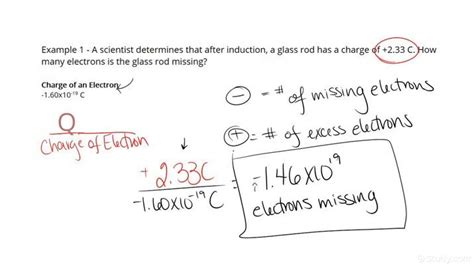 Example 1 - A scientist determines that after induction, a glass rod has a charge of +2.33 C. How
many electrons is the glass rod missing?
Charge of an Electron:
-1.60x10⁻¹⁹ C
Q
Charge of Electron
− = # of missing electrons
+ = # of excess electrons
+ 2.33C
-1.60X10⁻¹⁹ C
= -1.46X10¹⁹
electrons missing
Study.com